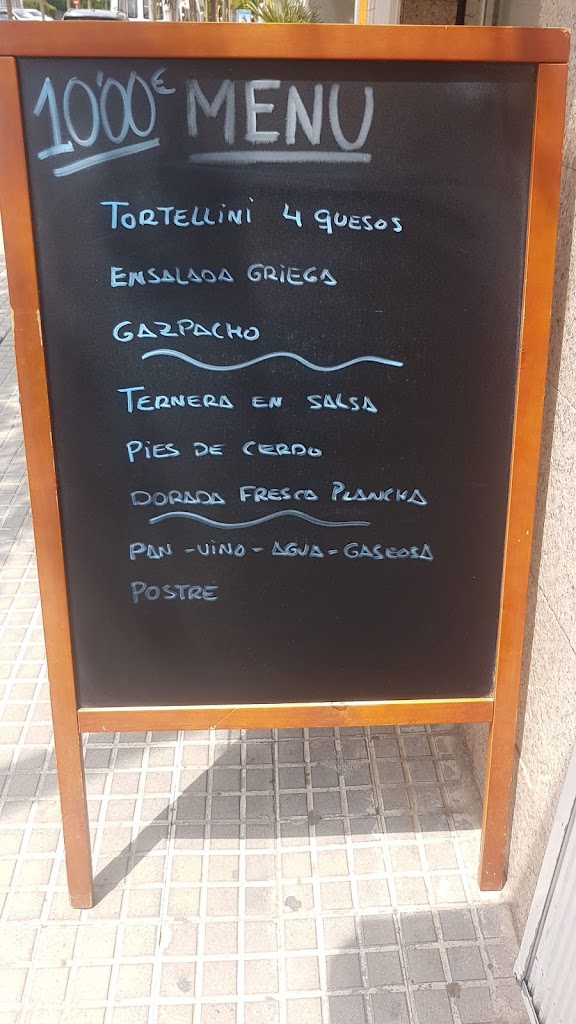 10'00€ MENU
TORTELLINI 4 QUESOS
ENSALADA GRIEGA
GAZPACHO
TERNERA EN SALSA
PIES DE CERDO
DORADA FRESCA PLANCHA
PAN - VINO - AGUA - GASEOSA
POSTRE